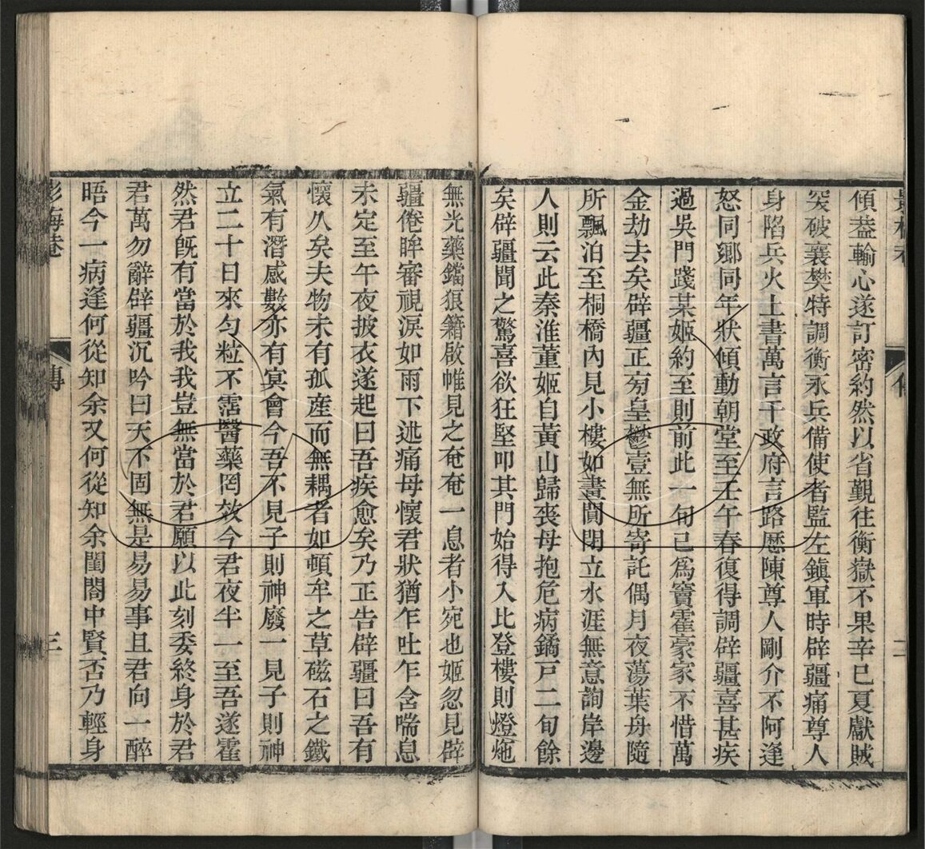 傾葢輸心遂訂密約然以省覲往衡嶽不果辛巳夏獻賊
突破襄樊特調衡永兵備使者監左鎮軍時辟疆痛尊人
身陷兵火上書萬言干政府言路歷陳尊人剛介不阿逢
怒同鄉同年狀傾動朝堂至壬午春復得調辟疆喜甚疾
過吳門踐某姬約至則前此一旬已爲竇霍豪家不惜萬
金劫去矣辟疆正旁皇鬱壹無所寄託偶月夜蕩葉舟隨
所飄泊至桐橋內見小樓如畫闃閉立水涯無意詢岸邊
人則云此秦淮董姬自黃山歸喪母抱危病鐍戸二旬餘
矣辟疆聞之驚喜欲狂堅叩其門始得入比登樓則燈灺
無光藥鐺狼籍啟帷見之奄奄一息者小宛也姬忽見辟
疆倦眸審視淚如雨下述痛母懷君狀猶乍吐乍含喘息
未定至午夜披衣遂起曰吾疾愈矣乃正告辟疆曰吾有
懷久矣夫物未有孤産而無耦者如頓牟之草磁石之鐵
氣有潛感數亦有冥會今吾不見子則神廢一見子則神
立二十日來勺粒不霑醫藥罔效今君夜半一至吾遂霍
然君旣有當於我我豈無當於君願以此刻委終身於君
君萬勿辭辟疆沉吟曰天下固無是易易事且君向一醉
晤今一病逢何從知余又何從知余閨閤中賢否乃輕身
影梅菴 傳 三